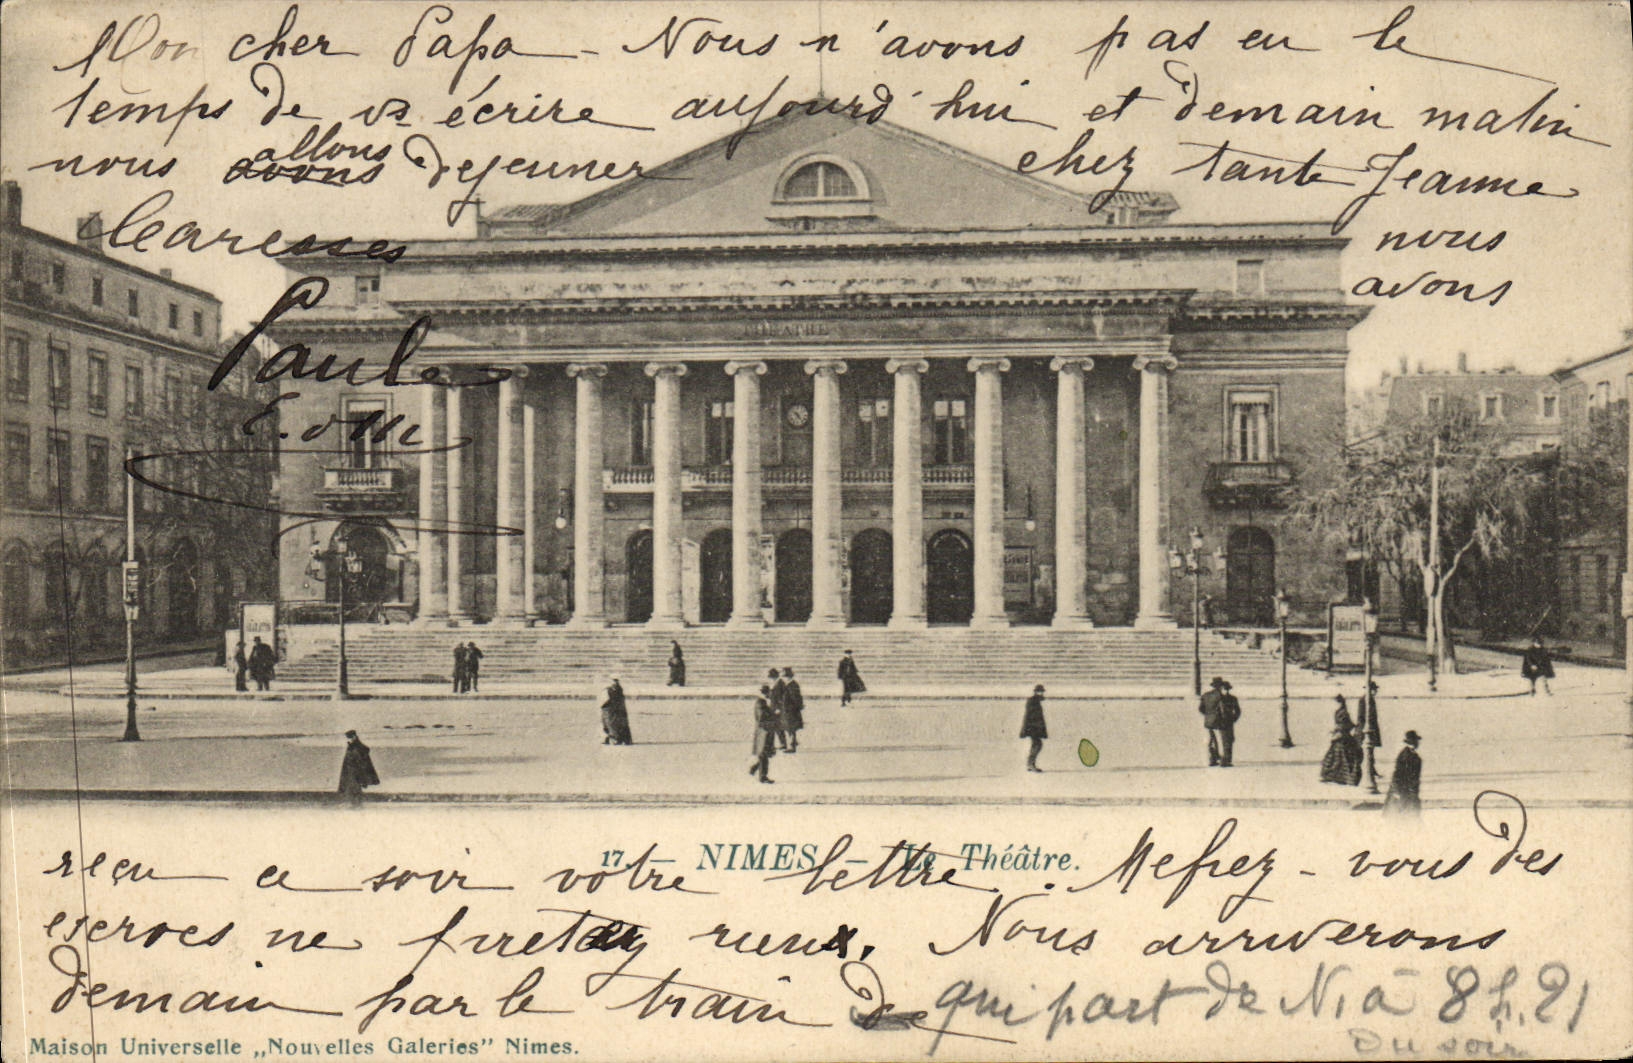 Mon cher Papa - Nous n'avons pas eu le
temps de vs écrire aujourd'hui et demain matin
nous avons allons dejeuner chez tante Jeanne
Caresses
nous
avons
Paule
THEATRE
17. — NIMES — Le Théâtre.
reçu ce soir votre lettre. Mefiez-vous des
escrocs ne pretez rien. Nous arriverons
demain par le train de qui part de N. à 8 h. 21
du soir
Maison Universelle „Nouvelles Galeries” Nimes.